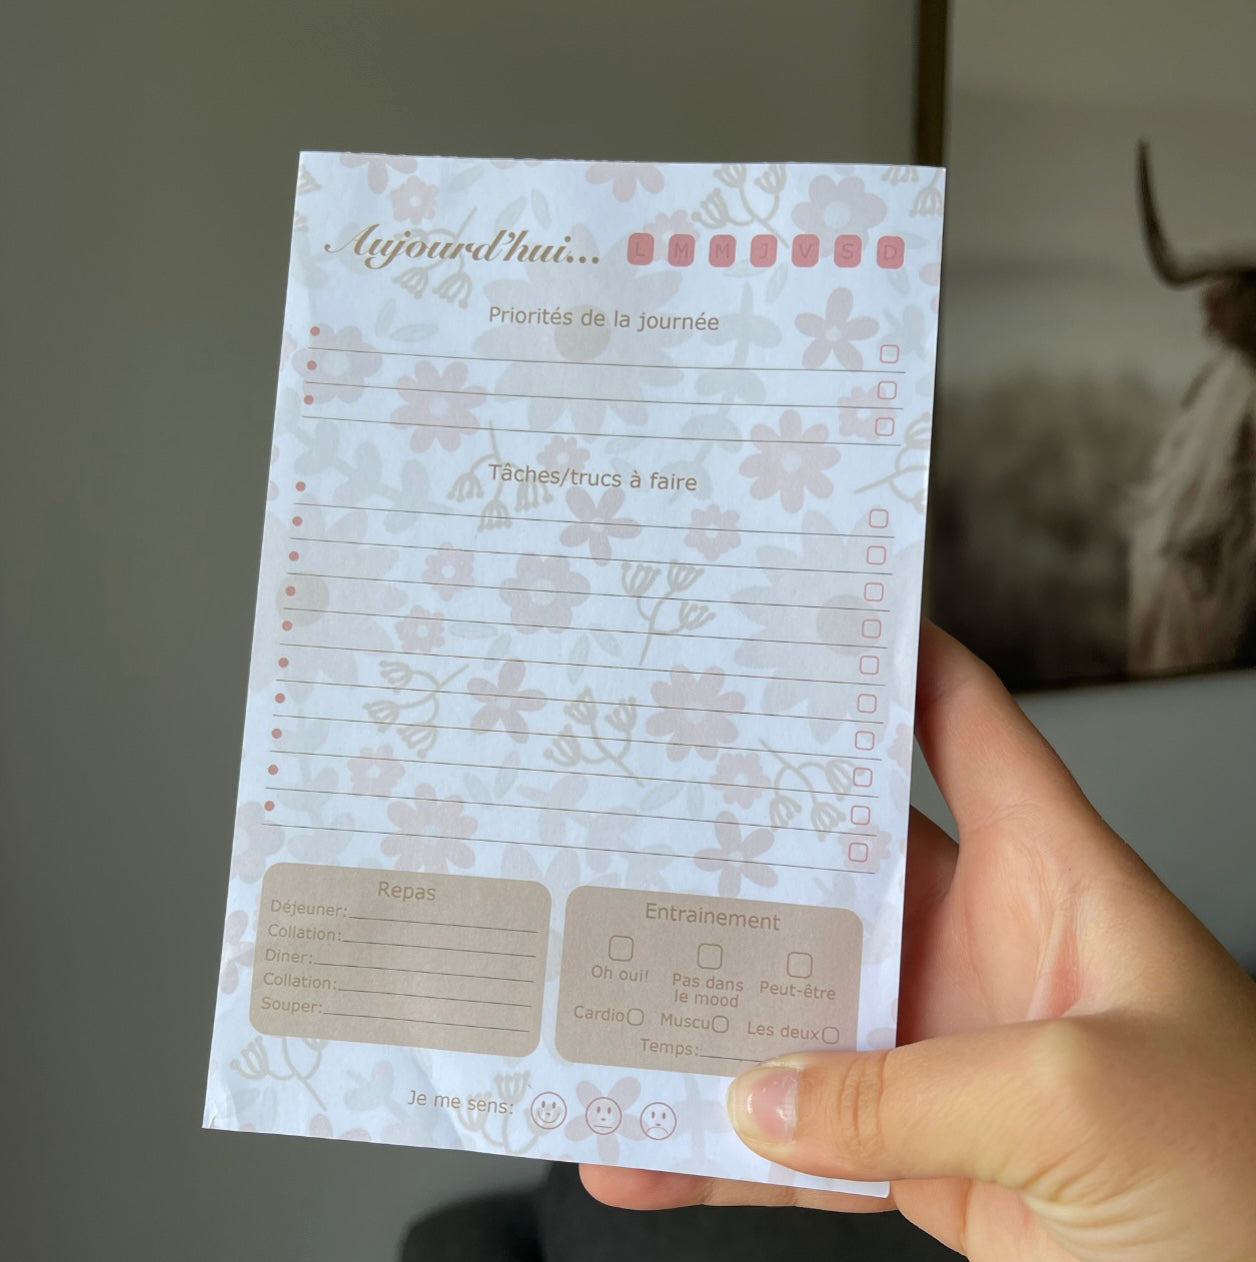 Aujourd'hui... L M M J V S D
Priorités de la journée
Tâches/trucs à faire
Repas
Déjeuner:
Collation:
Diner:
Collation:
Souper:
Entrainement
Oh oui!
Pas dans
le mood
Peut-être
Cardio Muscu Les deux
Temps:
Je me sens: